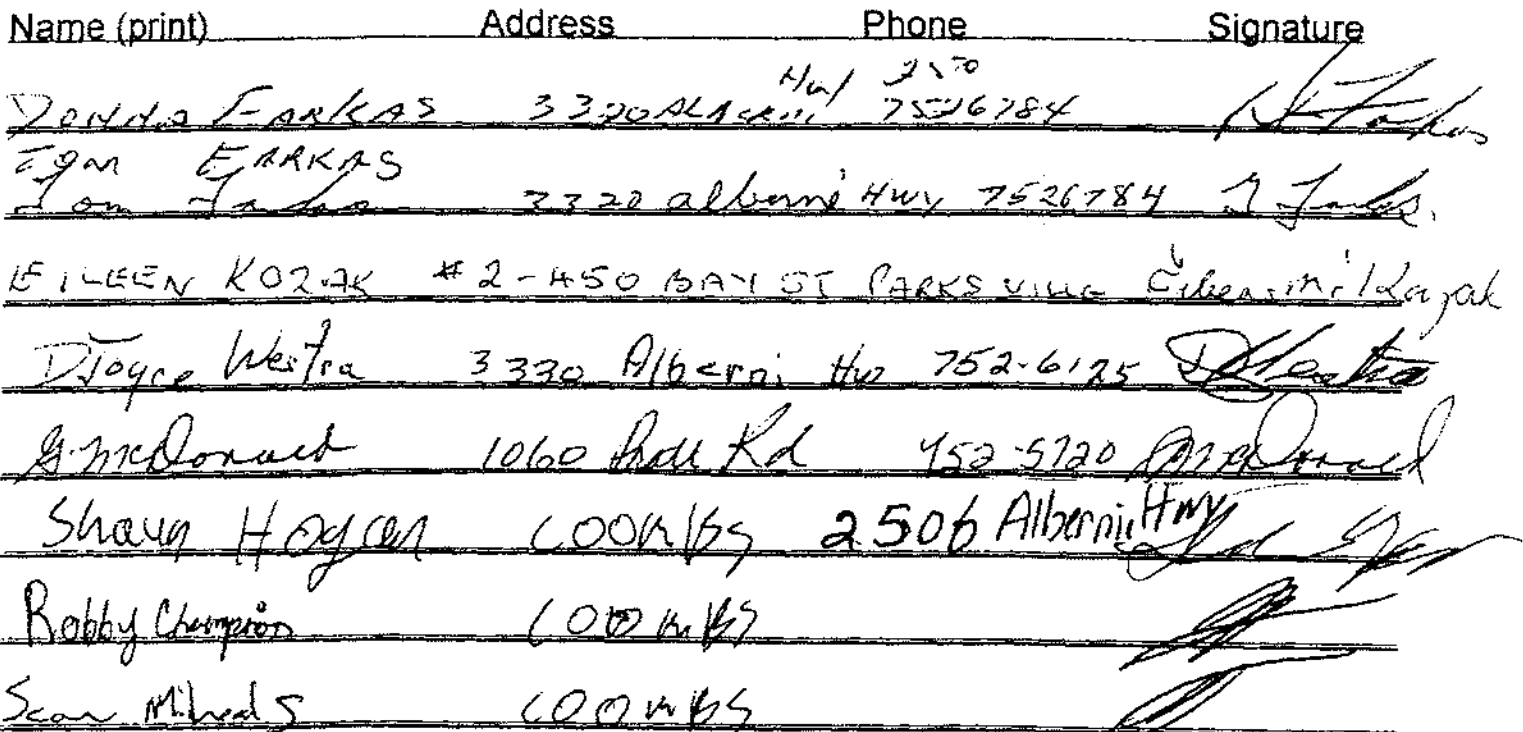 Name (print) Address Phone Signature
Hwy 250
DONNA FARKAS 3320 ALBERNI 7526784
Tom FARKAS
Tom Farkas 3320 alberni Hwy 7526784 T Farkas.
EILEEN KOZAK #2-450 BAY ST PARKSVILLE Eileen Kozak
D Joyce Westra 3330 Alberni Hw 752-6125 D Westra
G. McDonald 1060 Rd 752-5720 G McDonald
Shaun Hogan COOMBS 2506 Alberni Hwy
Robby Champion COOMBS
Sean COOMBS